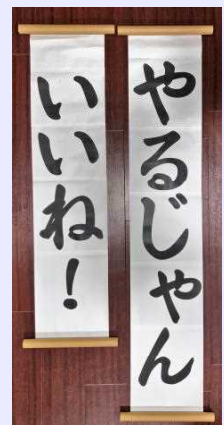 やるじゃん
いいね！